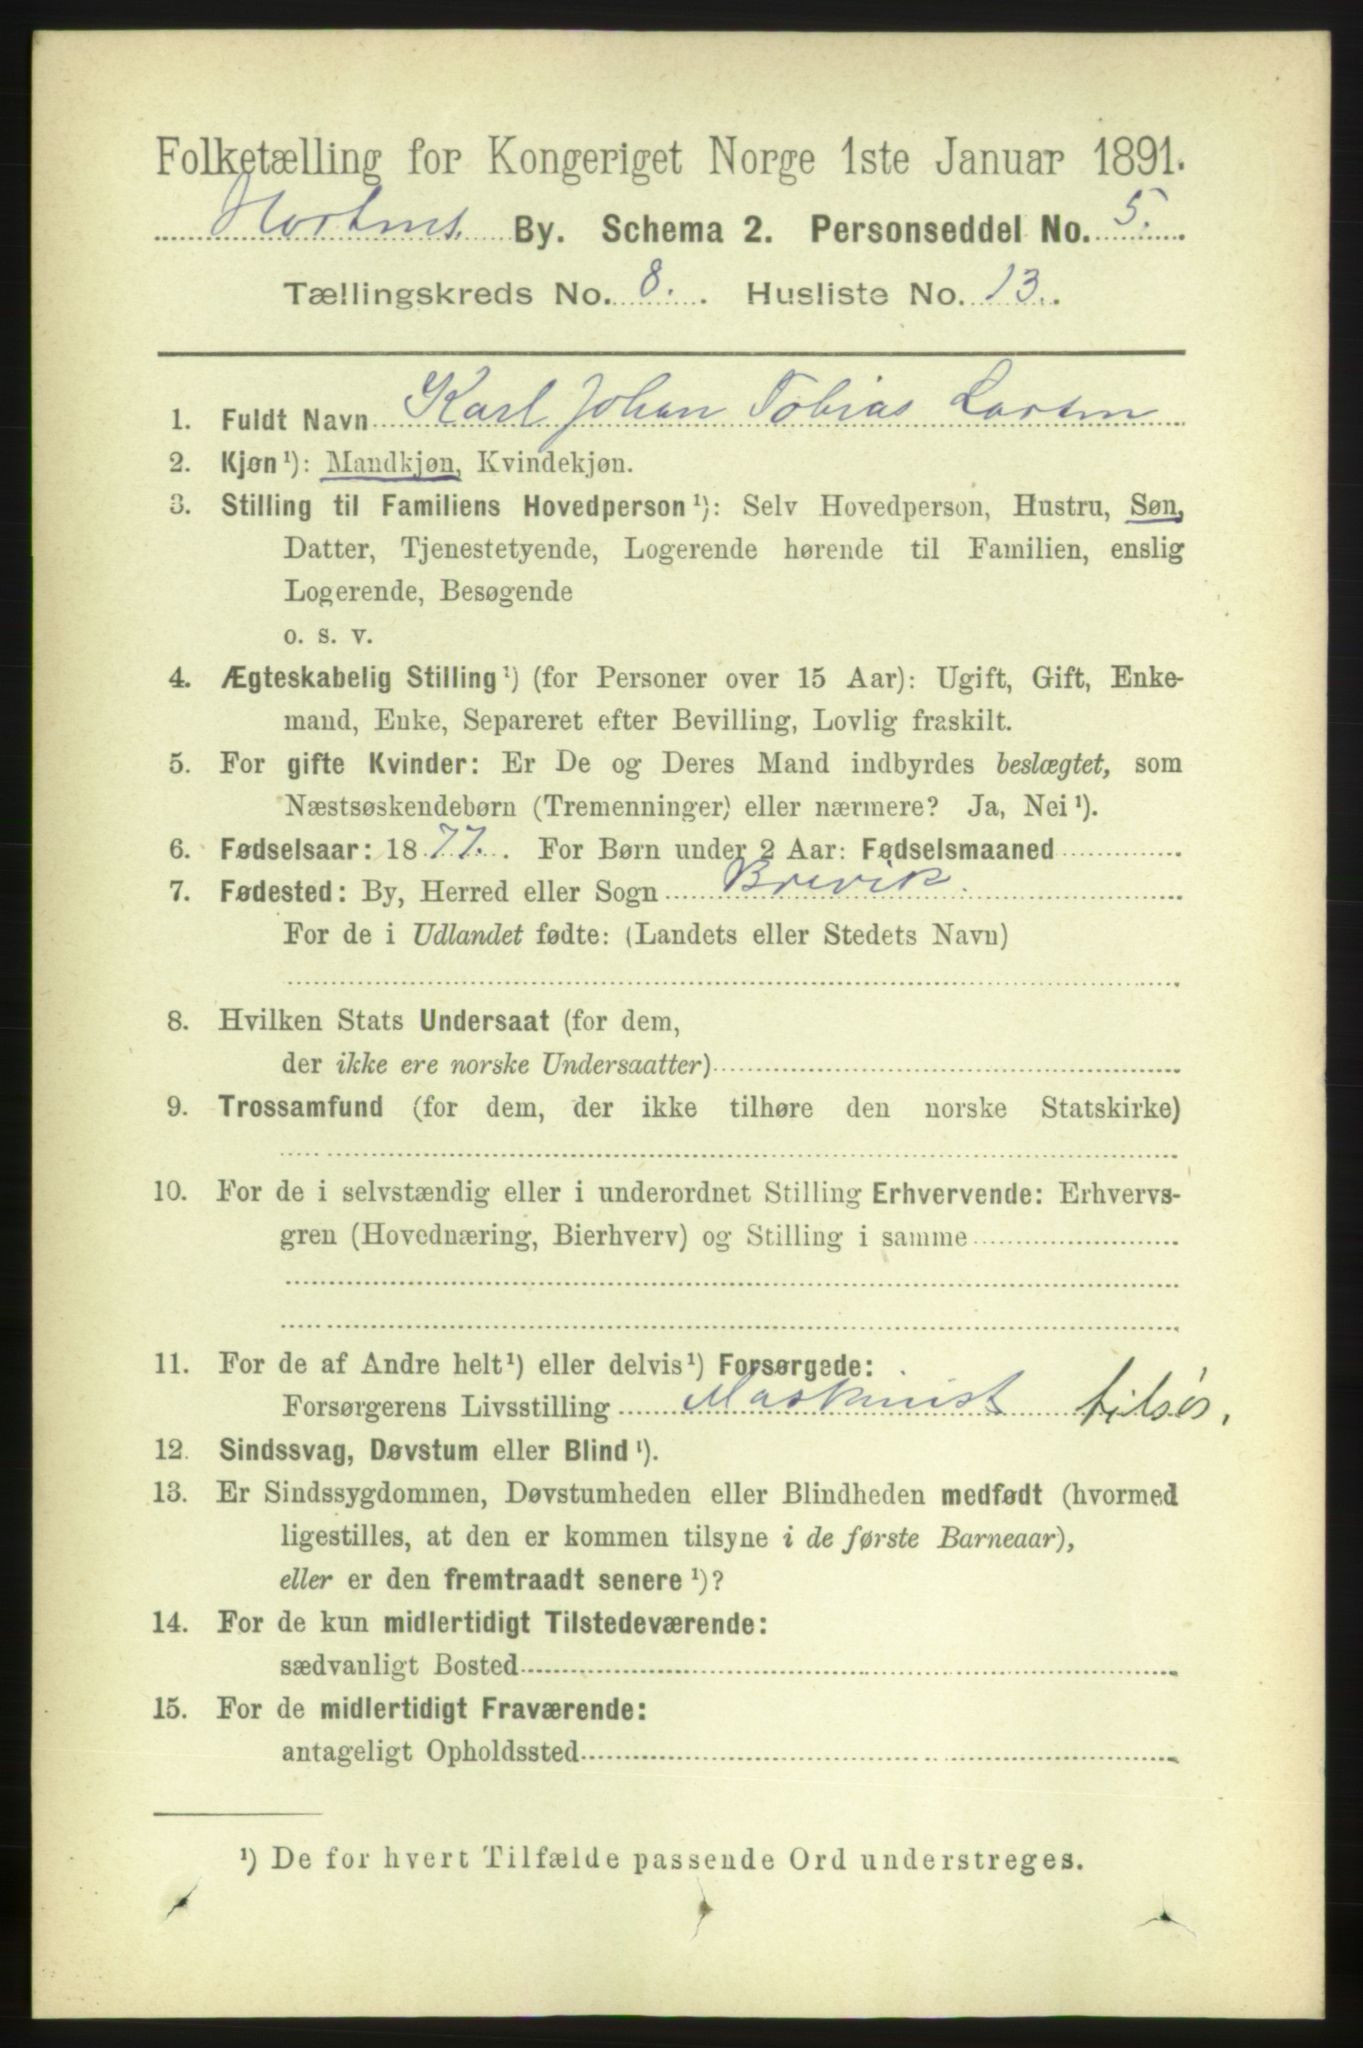 Folketælling for Kongeriget Norge 1ste Januar 1891.
Hortens By. Schema 2. Personseddel No. 5.
Tællingskreds No. 8. Husliste No. 13.
1. Fuldt Navn Karl Johan Tobias Larsen
2. Kjøn¹): Mandkjøn, Kvindekjøn.
3. Stilling til Familiens Hovedperson¹): Selv Hovedperson, Hustru, Søn,
Datter, Tjenestetyende, Logerende hørende til Familien, enslig
Logerende, Besøgende
o. s. v.
4. Ægteskabelig Stilling¹) (for Personer over 15 Aar): Ugift, Gift, Enke-
mand, Enke, Separeret efter Bevilling, Lovlig fraskilt.
5. For gifte Kvinder: Er De og Deres Mand indbyrdes beslægtet, som
Næstsøskendebørn (Tremenninger) eller nærmere? Ja, Nei¹).
6. Fødselsaar: 1877. For Børn under 2 Aar: Fødselsmaaned
7. Fødested: By, Herred eller Sogn Brevik.
For de i Udlandet fødte: (Landets eller Stedets Navn)
8. Hvilken Stats Undersaat (for dem,
der ikke ere norske Undersaatter)
9. Trossamfund (for dem, der ikke tilhøre den norske Statskirke)
10. For de i selvstændig eller i underordnet Stilling Erhvervende: Erhvervs-
gren (Hovednæring, Bierhverv) og Stilling i samme
11. For de af Andre helt¹) eller delvis¹) Forsørgede:
Forsørgerens Livsstilling Maskinist tilsøs.
12. Sindssvag, Døvstum eller Blind¹).
13. Er Sindssygdommen, Døvstumheden eller Blindheden medfødt (hvormed
ligestilles, at den er kommen tilsyne i de første Barneaar),
eller er den fremtraadt senere¹)?
14. For de kun midlertidigt Tilstedeværende:
sædvanligt Bosted
15. For de midlertidigt Fraværende:
antageligt Opholdssted
¹) De for hvert Tilfælde passende Ord understreges.